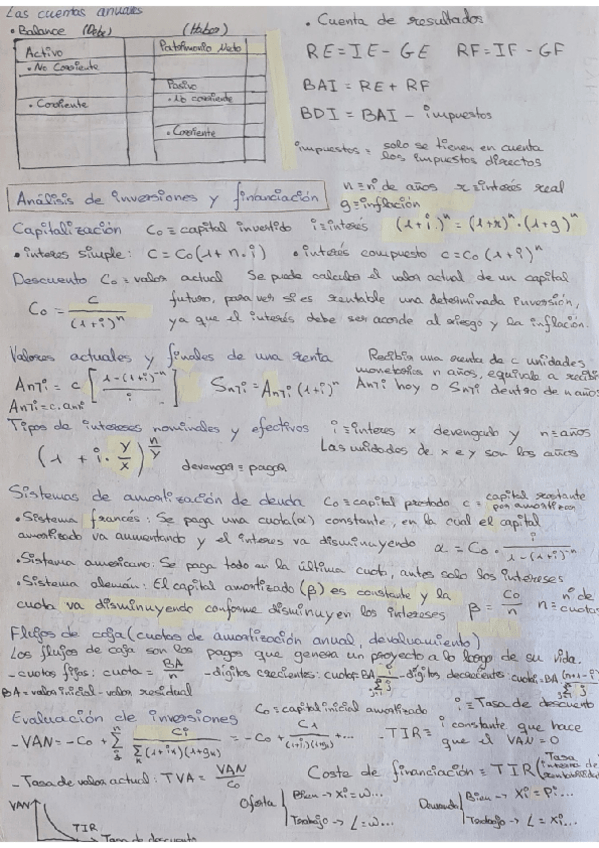 Las cuentas anuales
• Balance (Debe) (Haber)
Activo
Patrimonio Neto
• No Corriente
Pasivo
• No corriente
• Corriente
• Corriente
• Cuenta de resultados
RE = IE - GE RF = IF - GF
BAI = RE + RF
BDI = BAI - impuestos
impuestos = solo se tienen en cuenta
los impuestos directos
Análisis de inversiones y financiación
n = nº de años r = interés real
g = inflación
Capitalización C₀ = capital invertido i = interés (1+i)ⁿ = (1+r)ⁿ · (1+g)ⁿ
• interes simple: C = C₀(1 + n·i) • interés compuesto C = C₀(1+i)ⁿ
Descuento C₀ = valor actual Se puede calcular el valor actual de un capital
C₀ = C/(1+i)ⁿ futuro, para ver si es rentable una determinada inversión,
ya que el interés debe ser acorde al riesgo y la inflación.
Valores actuales y finales de una renta
Recibir una renta de c unidades
monetarias n años, equivale a recibir
An⌉i hoy o Sn⌉i dentro de n años
An⌉i = c [(1-(1+i)⁻ⁿ)/i] Sn⌉i = An⌉i (1+i)ⁿ
An⌉i = c·an⌉i
Tipos de intereses nominales y efectivos i = interes x devengado y n = años
(1 + i · y/x)^(n/y) Las unidades de x e y son los años
devengar = pagar
Sistemas de amortización de deuda C₀ = capital prestado c = capital restante
por amortizar
• Sistema francés: Se paga una cuota(α) constante, en la cual el capital
amortizado va aumentando y el interes va disminuyendo α = C₀ · i/(1-(1+i)⁻ⁿ)
• Sistema americano: Se paga todo en la última cuota, antes solo los intereses
• Sistema alemán: El capital amortizado (β) es constante y la
cuota va disminuyendo conforme disminuyen los intereses β = C₀/n n = nº de cuotas
Flujos de caja (cuotas de amortización anual, devaluamiento)
Los flujos de caja son los pagos que genera un proyecto a lo largo de su vida.
- cuotas fijas: cuota = BA/n - dígitos crecientes: cuota = BA - dígitos decrecientes: cuota = BA
BA = valor inicial - valor residual
Evaluación de inversiones C₀ = capital inicial amortizado i = Tasa de descuento
- VAN = -C₀ + Σ Ci/ = -C₀ + C₁/ + ... - TIR = i constante que hace
que el VAN = 0
- Tasa de valor actual: TVA = VAN/C₀ Coste de financiación = TIR (Tasa
interna de
VAN
TIR
Tasa de descuento
Oferta
Bien → Xi = w...
Trabajo → L = w...
Demanda
Bien → Xi = Pi...
Trabajo → L = Xi...